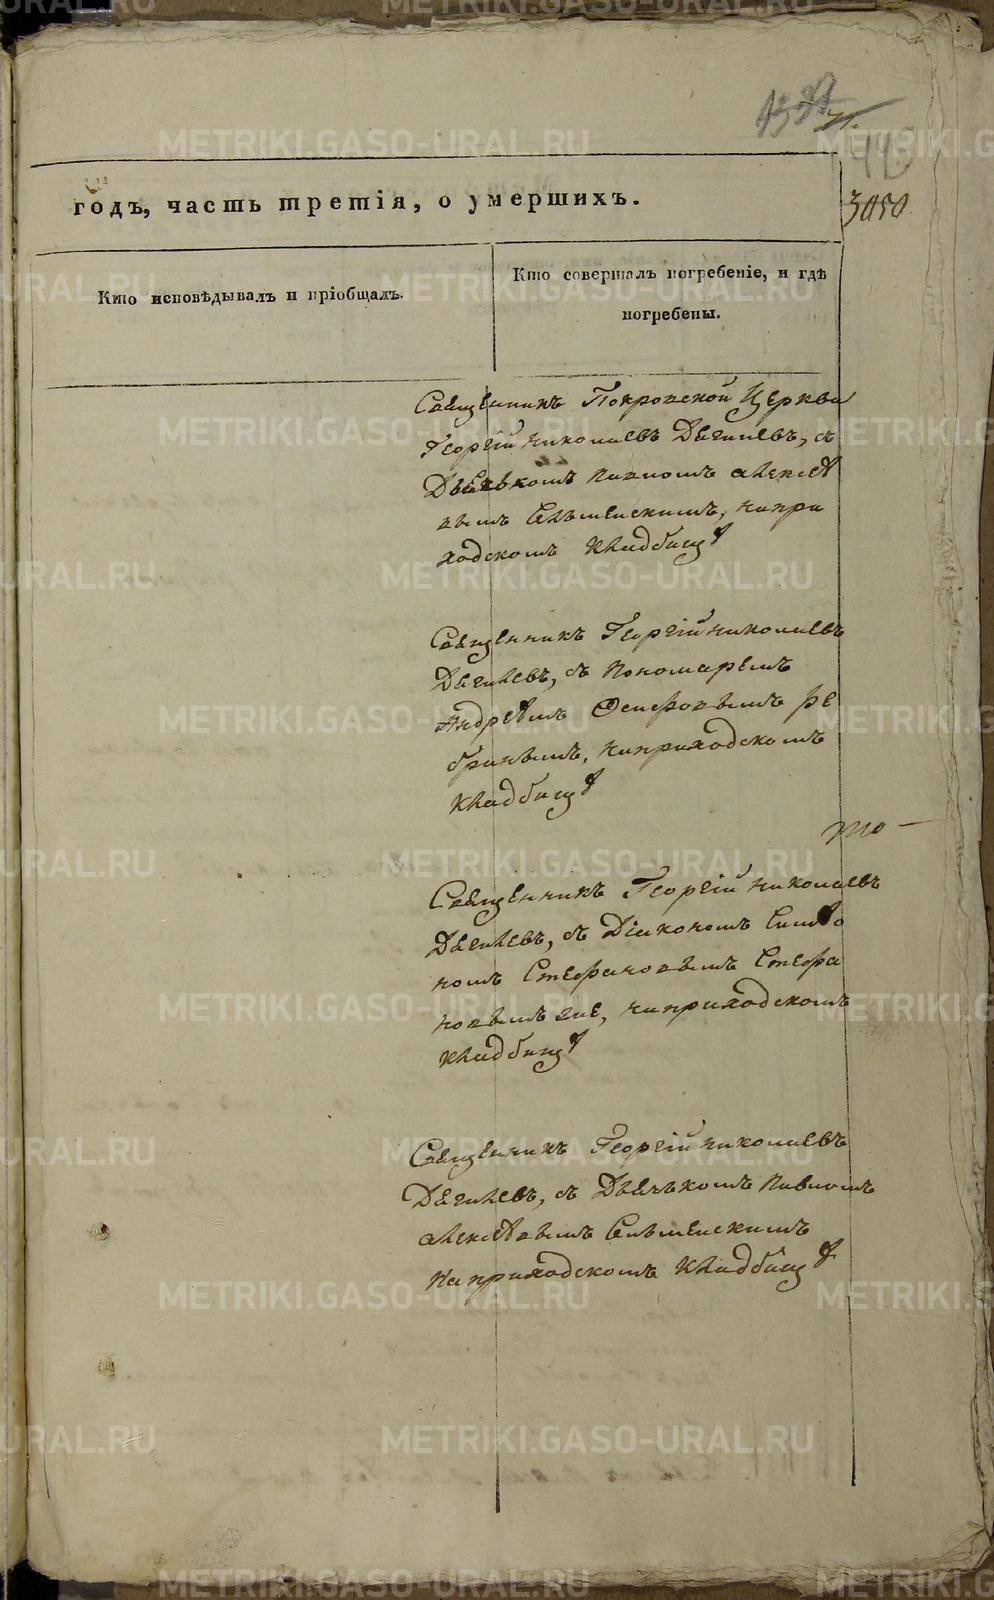 годъ, часть третія, о умершихъ.
3050
Кто исповѣдывалъ и пріобщалъ.
Кто совершалъ погребеніе, и гдѣ
погребены.
Священникъ Покровской Церкви
Георгій Николаевъ Дягилевъ, съ
Дьячькомъ Павломъ Алексѣ
вымъ Сельменскимъ, на при
ходскомъ Кладбищѣ
Священникъ Георгій Николаевъ
Дягилевъ, съ Пономаремъ
Андреѣмъ Осиповымъ Ре
бринымъ, на приходскомъ
Кладбищѣ
Священникъ Георгій Николаевъ
Дягилевъ, съ Діакономъ Симѣо
номъ Стефановымъ Стефа
новымъ же, на приходскомъ
Кладбищѣ
Священникъ Георгій Николаевъ
Дягилевъ, съ Дьячькомъ Павломъ
Алексѣвымъ Сельменскимъ
На приходскомъ Кладбищѣ
METRIKI.GASO-URAL.RU